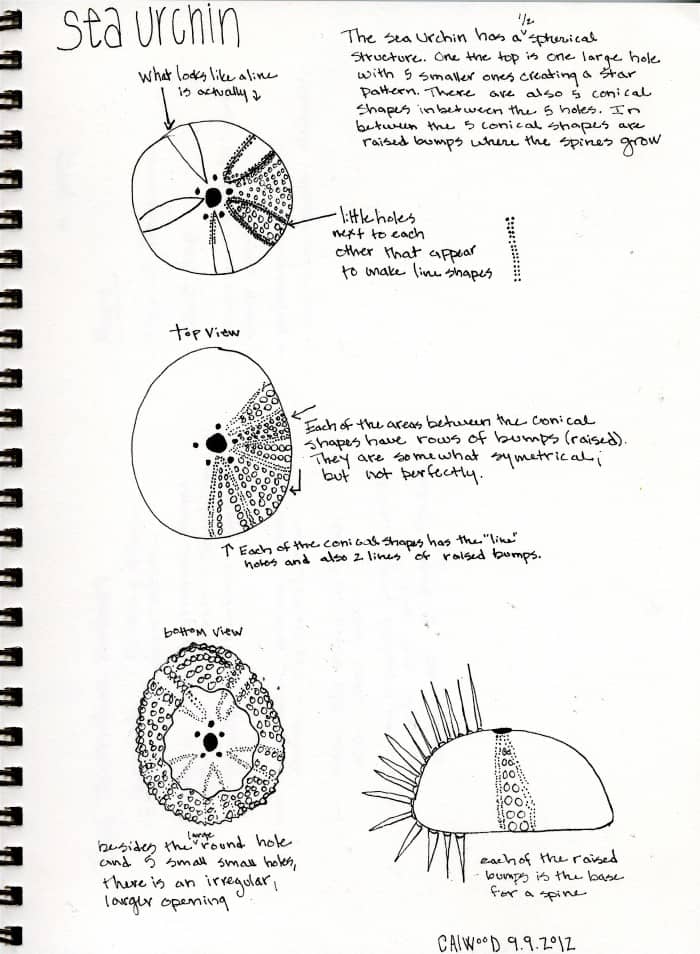 sea urchin
The sea urchin has a 1/2 spherical
structure. One the top is one large hole
with 5 smaller ones creating a star
pattern. There are also 5 conical
shapes inbetween the 5 holes. In
between the 5 conical shapes are
raised bumps where the spines grow
what looks like a line
is actually
little holes
next to each
other that appear
to make line shapes
top view
Each of the areas between the conical
shapes have rows of bumps (raised).
They are somewhat symetrical,
but not perfectly.
↑ Each of the conical shapes has the "line"
holes and also 2 lines of raised bumps.
bottom view
besides the large round hole
and 5 small small holes,
there is an irregular,
larger opening
each of the raised
bumps is the base
for a spine
CALWOOD 9.9.2012